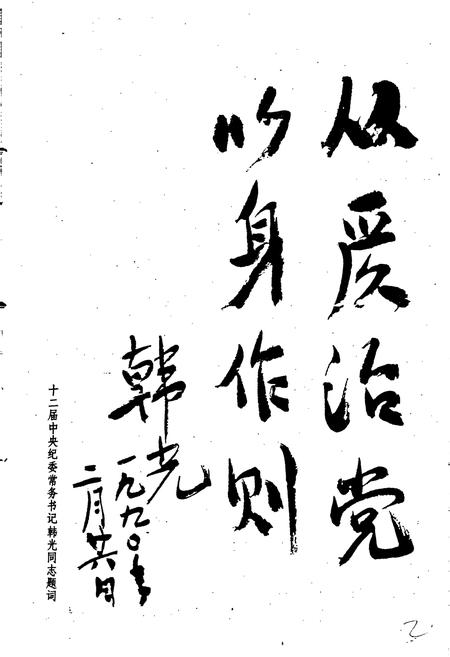 从严治党
以身作则
韩光
一九九〇年
二月廿六日
十二届中央纪委常务书记韩光同志题词
2